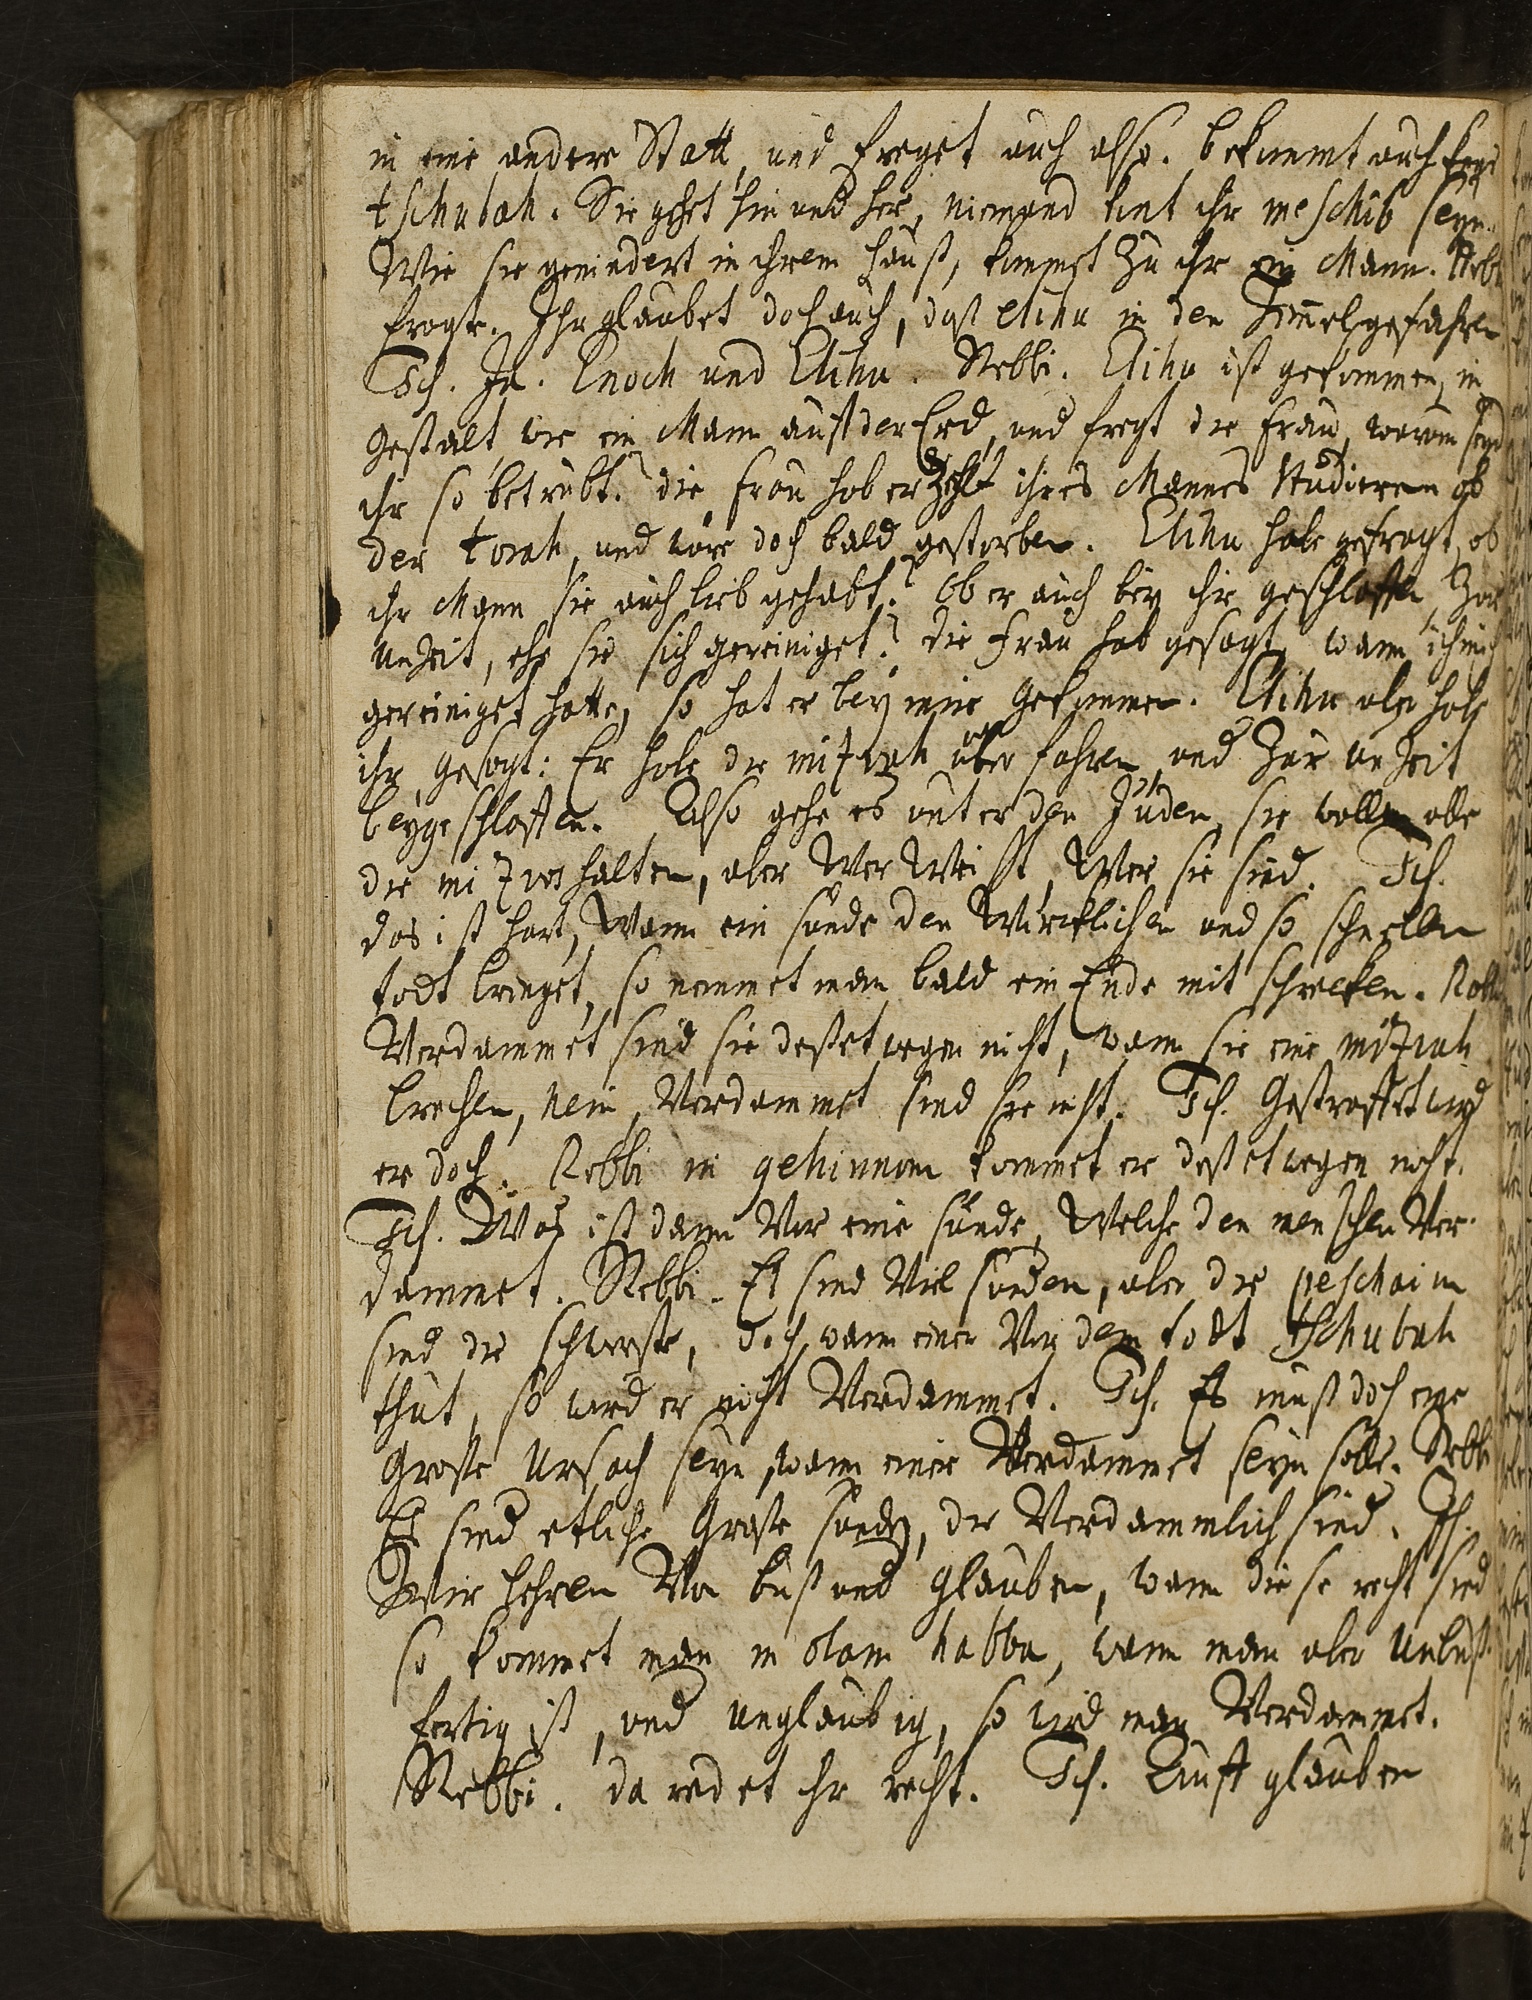 in eine andere Statt, und fraget auch also. bekommt auch keine
tschubah. Sie gehet hin und her, niemand kont ihr meschib seyn.
Wie sie gemindert in ihrem hauß, kommet zu ihr ein Mann. Rebbi
fragte. Ihr glaubet doch auch, daß Elihu in den Himel gefahren
Ich. Ja. Enoch und Elihu. Rebbi. Elihu ist gekommen, in
gestalt wie ein Mann auß der Erd, und fragt die Frau, warum seyd
ihr so betrübt? die Frau hab erzehlt ihres Mannes Studieren ob
der torah, und wäre doch bald gestorben. Elihu habe gefragt, ob
ihr Mann sie auch lieb gehabt? Ob er auch bey ihr geschlaffen, zur
unzeit, ehe sie sich gereiniget? die Frau hab gesagt, wann ich mich
gereiniget hatte, so hat er bey mir gekommen. Elihu aber habe
ihr gesagt: Er habe die mizwah überfahren und zur unzeit
beygeschlaffen. Also gehe es unter den Juden, sie wollen alle
die mizwos halten, aber Wer Weist, Wer sie sind. Ich.
das ist hart, Wann ein sünde den Würcklichen und so schnellen
todt bringet, so nemmet man bald ein Ende mit schrecken. Rebbi
Verdammet sind sie deßetwegen nicht, wann sie eine mizwah
brechen, nein, Verdammet sind sie nicht. Ich. Gestraffet wird
er doch. Rebbi in gehinnom kommet er deßetwegen nicht.
Ich. Was ist dann Vor eine sünde, Welche den menschen Ver-
dammet. Rebbi. Es sind Viel sünden, aber die peschaim
sind die schwerste, doch, wann einer Vor dem todt tschubah
thut, so wird er nicht Verdammet. Ich. Es muß doch eine
Große Ursach seyn, wann einer Verdammet seyn solle. Rebbi
Es sind etliche Große sünden, die Verdammlich sind. Ich.
Wir lehren Von buß und glauben, wann diese recht sind
so kommet man in olam habba, wann man aber Unbuß-
fertig ist, und unglaubig, so wird man Verdammet.
Rebbi. da redet ihr recht. Ich. Buß glauben